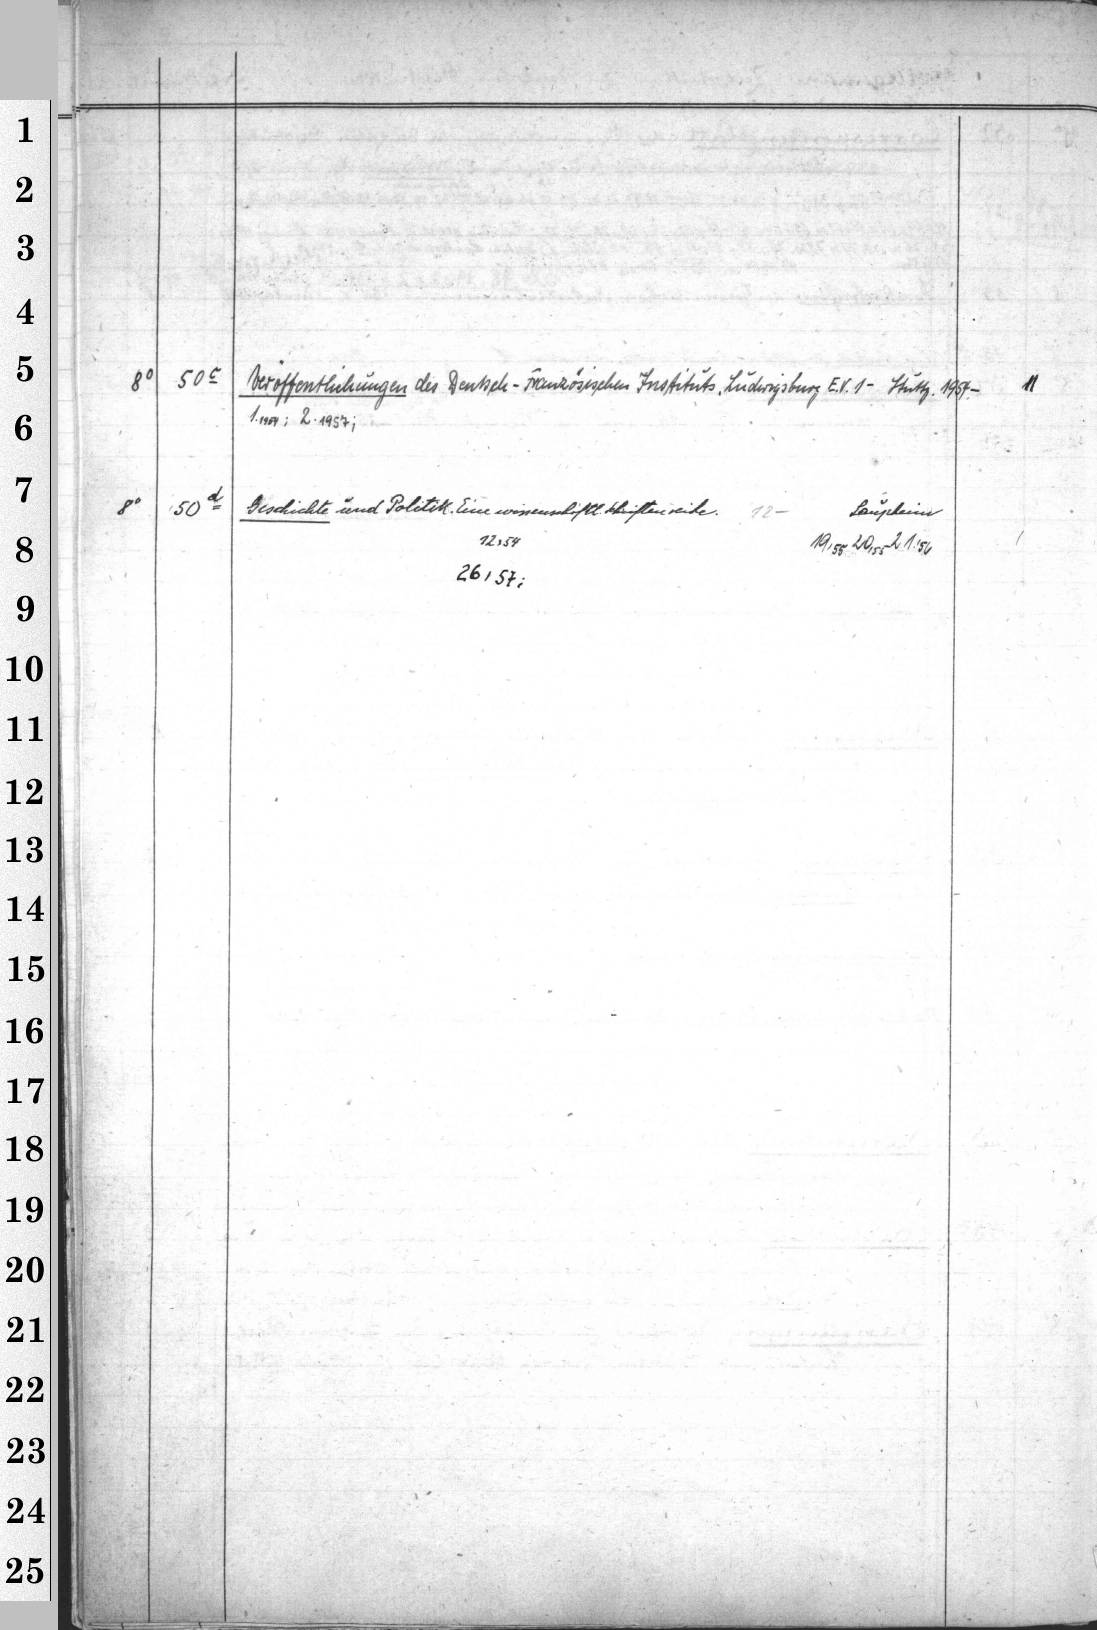 1
2
3
4
5
8° 50 c Veröffentlichungen des Deutsch-Französischen Instituts, Ludwigsburg E.V. 1- Stuttg. 1954- 11
6
1.1954; 2.1957;
7
8° 50 d Geschichte und Politik. Eine wissenschaftl. Schriftenreihe. 12- Laupheim
8
12,54 19,55 20,55 21,56
26,57;
9
10
11
12
13
14
15
16
17
18
19
20
21
22
23
24
25